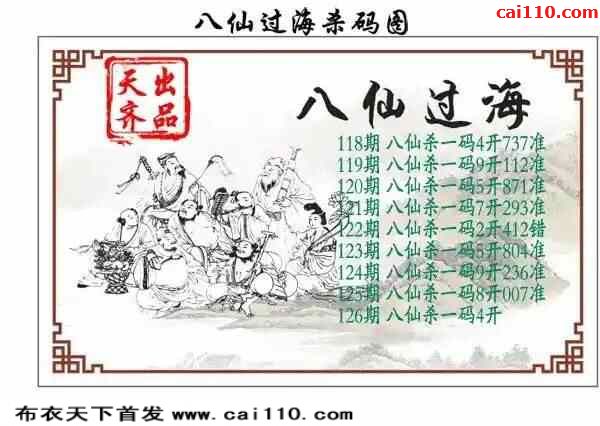 cai110.com
八仙过海杀码图
天齐出品
八仙过海
118期 八仙杀一码4开737准
119期 八仙杀一码9开112准
120期 八仙杀一码5开871准
121期 八仙杀一码7开293准
122期 八仙杀一码2开412错
123期 八仙杀一码5开804准
124期 八仙杀一码9开236准
125期 八仙杀一码8开007准
126期 八仙杀一码4开
布衣天下首发 www.cai110.com